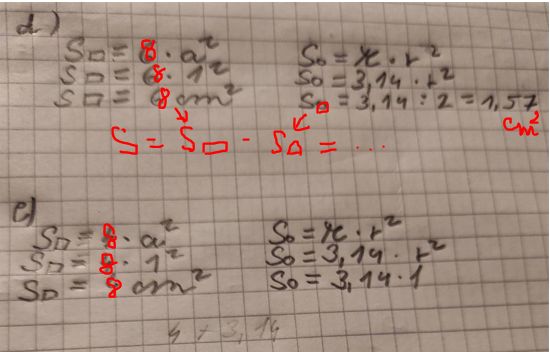 d)
S□ = 8 · a²
S□ = 8 · 1²
S□ = 8 cm²
S₀ = π · r²
S₀ = 3,14 · r²
S = 3,14 : 2 = 1,57
cm²
S = S▭ - S = ...
e)
S□ = 8 · a²
S□ = 8 · 1²
S□ = 8 cm²
S₀ = π · r²
S₀ = 3,14 · r²
S₀ = 3,14 · 1
4 + 3,14